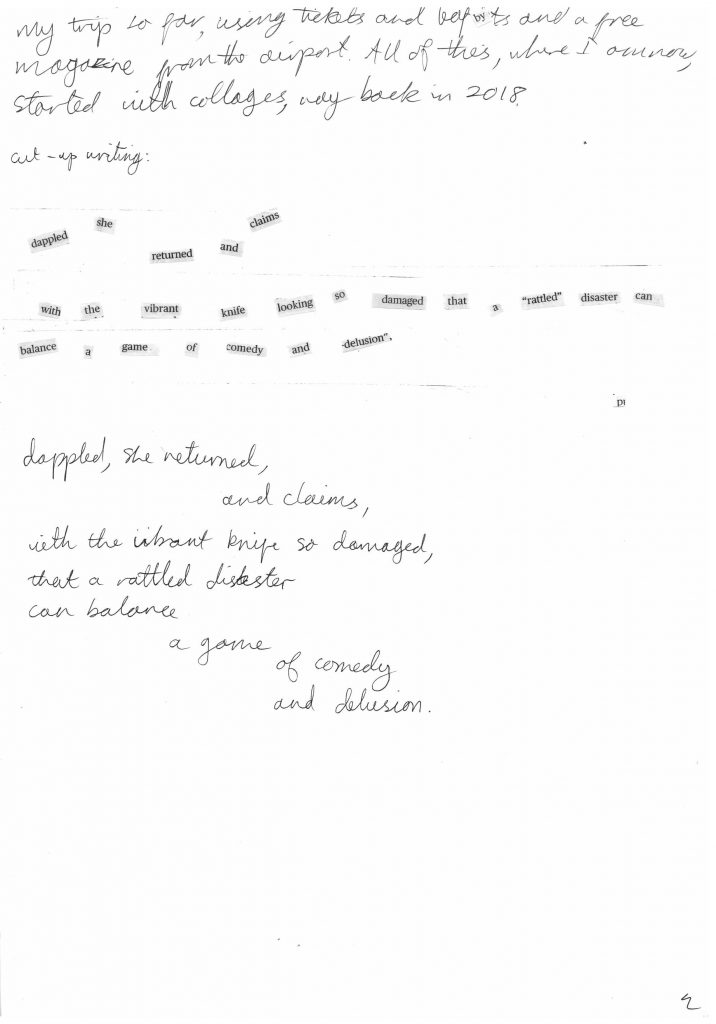 my trip so far, using tickets and and a free
magazine from the airport. All of this, where I am now,
started with collages, way back in 2018.
cut-up writing:
dappled she returned and claims
with the vibrant knife looking so damaged that a “rattled” disaster can
balance a game of comedy and delusion”,
pi
dappled, she returned,
and claims,
with the vibrant knife so damaged,
that a rattled disaster
can balance
a game
of comedy
and delusion.
2